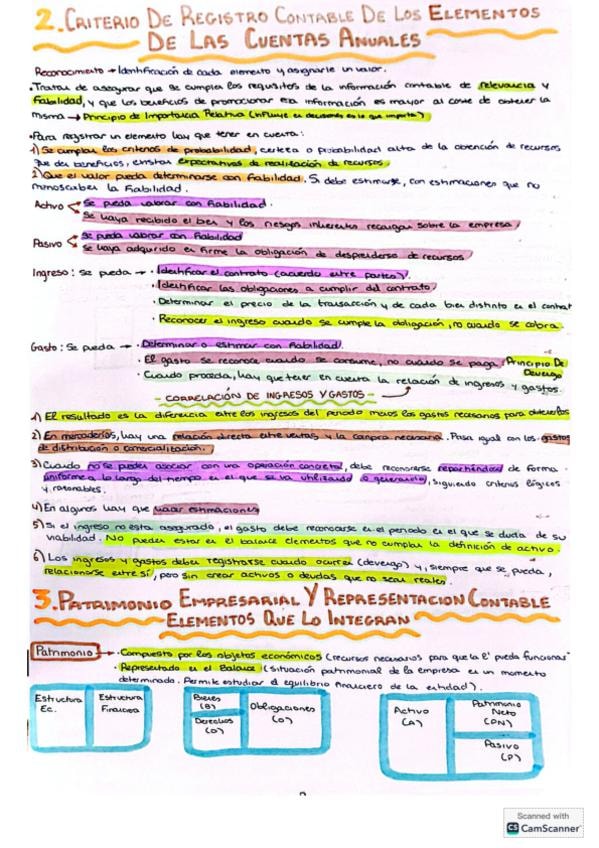 2. CRITERIO DE REGISTRO CONTABLE DE LOS ELEMENTOS
DE LAS CUENTAS ANUALES
Reconocimiento → Identificación de cada elemento y asignarle un valor.
• Tratar de asegurar que se cumplen los requisitos de la información contable de relevancia y
fiabilidad, y que los beneficios de promocionar esa información es mayor al coste de obtener la
misma → Principio de Importancia Relativa (influye en decisiones es lo que importa)
• Para registrar un elemento hay que tener en cuenta:
1) Se cumplan los criterios de probabilidad, certeza o probabilidad alta de la obtención de recursos
que den beneficios, existan expectativas de realización de recursos.
2) Que el valor pueda determinarse con fiabilidad. Si debe estimarse, con estimaciones que no
minoscaben la fiabilidad.
Activo < Se pueda valorar con fiabilidad.
Se haya recibido el bien y los riesgos inherentes recaigan sobre la empresa
Pasivo < Se pueda valorar con fiabilidad
Se haya adquirido en firme la obligación de desprenderse de recursos
Ingreso: Se pueda → • Identificar el contrato (acuerdo entre partes).
• Identificar las obligaciones a cumplir del contrato
• Determinar el precio de la transacción y de cada bien distinto en el contrat
• Reconocer el ingreso cuando se cumple la obligación, no cuando se cobra.
Gasto: Se pueda → • Determinar o estimar con fiabilidad.
• El gasto se reconoce cuando se consume, no cuando se paga (Principio De
Devengo
• Cuando proceda, hay que tener en cuenta la relación de ingresos y gastos.
- CORRELACIÓN DE INGRESOS Y GASTOS -
1) El resultado es la diferencia entre los ingresos del periodo menos los gastos necesarios para obtenerlos
2) En mercaderías, hay una relación directa entre ventas y la compra necesaria. Pasa igual con los gastos
de distribución o comercialización.
3) Cuando no se pueden asociar con una operación concreta, debe reconocerse repartiéndose de forma
uniforme a lo largo del tiempo en el que se va utilizando o generando, siguiendo criterios lógicos
y razonables.
4) En algunos hay que usar estimaciones
5) Si el ingreso no esta asegurado, el gasto debe reconocerse en el periodo en el que se duda de su
viabilidad. No pueden estar en el balance elementos que no cumplan la definición de activo.
6) Los ingresos y gastos deben registrarse cuando ocurren (devengo) y, siempre que se pueda,
relacionarse entre sí, pero sin crear activos o deudas que no sean reales.
3. PATRIMONIO EMPRESARIAL Y REPRESENTACION CONTABLE
ELEMENTOS QUE LO INTEGRAN
Patrimonio → • Compuesto por los objetos económicos (recursos necesarios para que la Eª pueda funcionar
• Representado en el Balance (situación patrimonial de la empresa en un momento
determinado. Permite estudiar el equilibrio financiero de la entidad).
Estructura
Ec.
Estructura
Financiera
Bienes
(B)
Derechos
(D)
Obligaciones
(O)
Activo
(A)
Patrimonio
Neto
(PN)
Pasivo
(P)
Scanned with
CS CamScanner